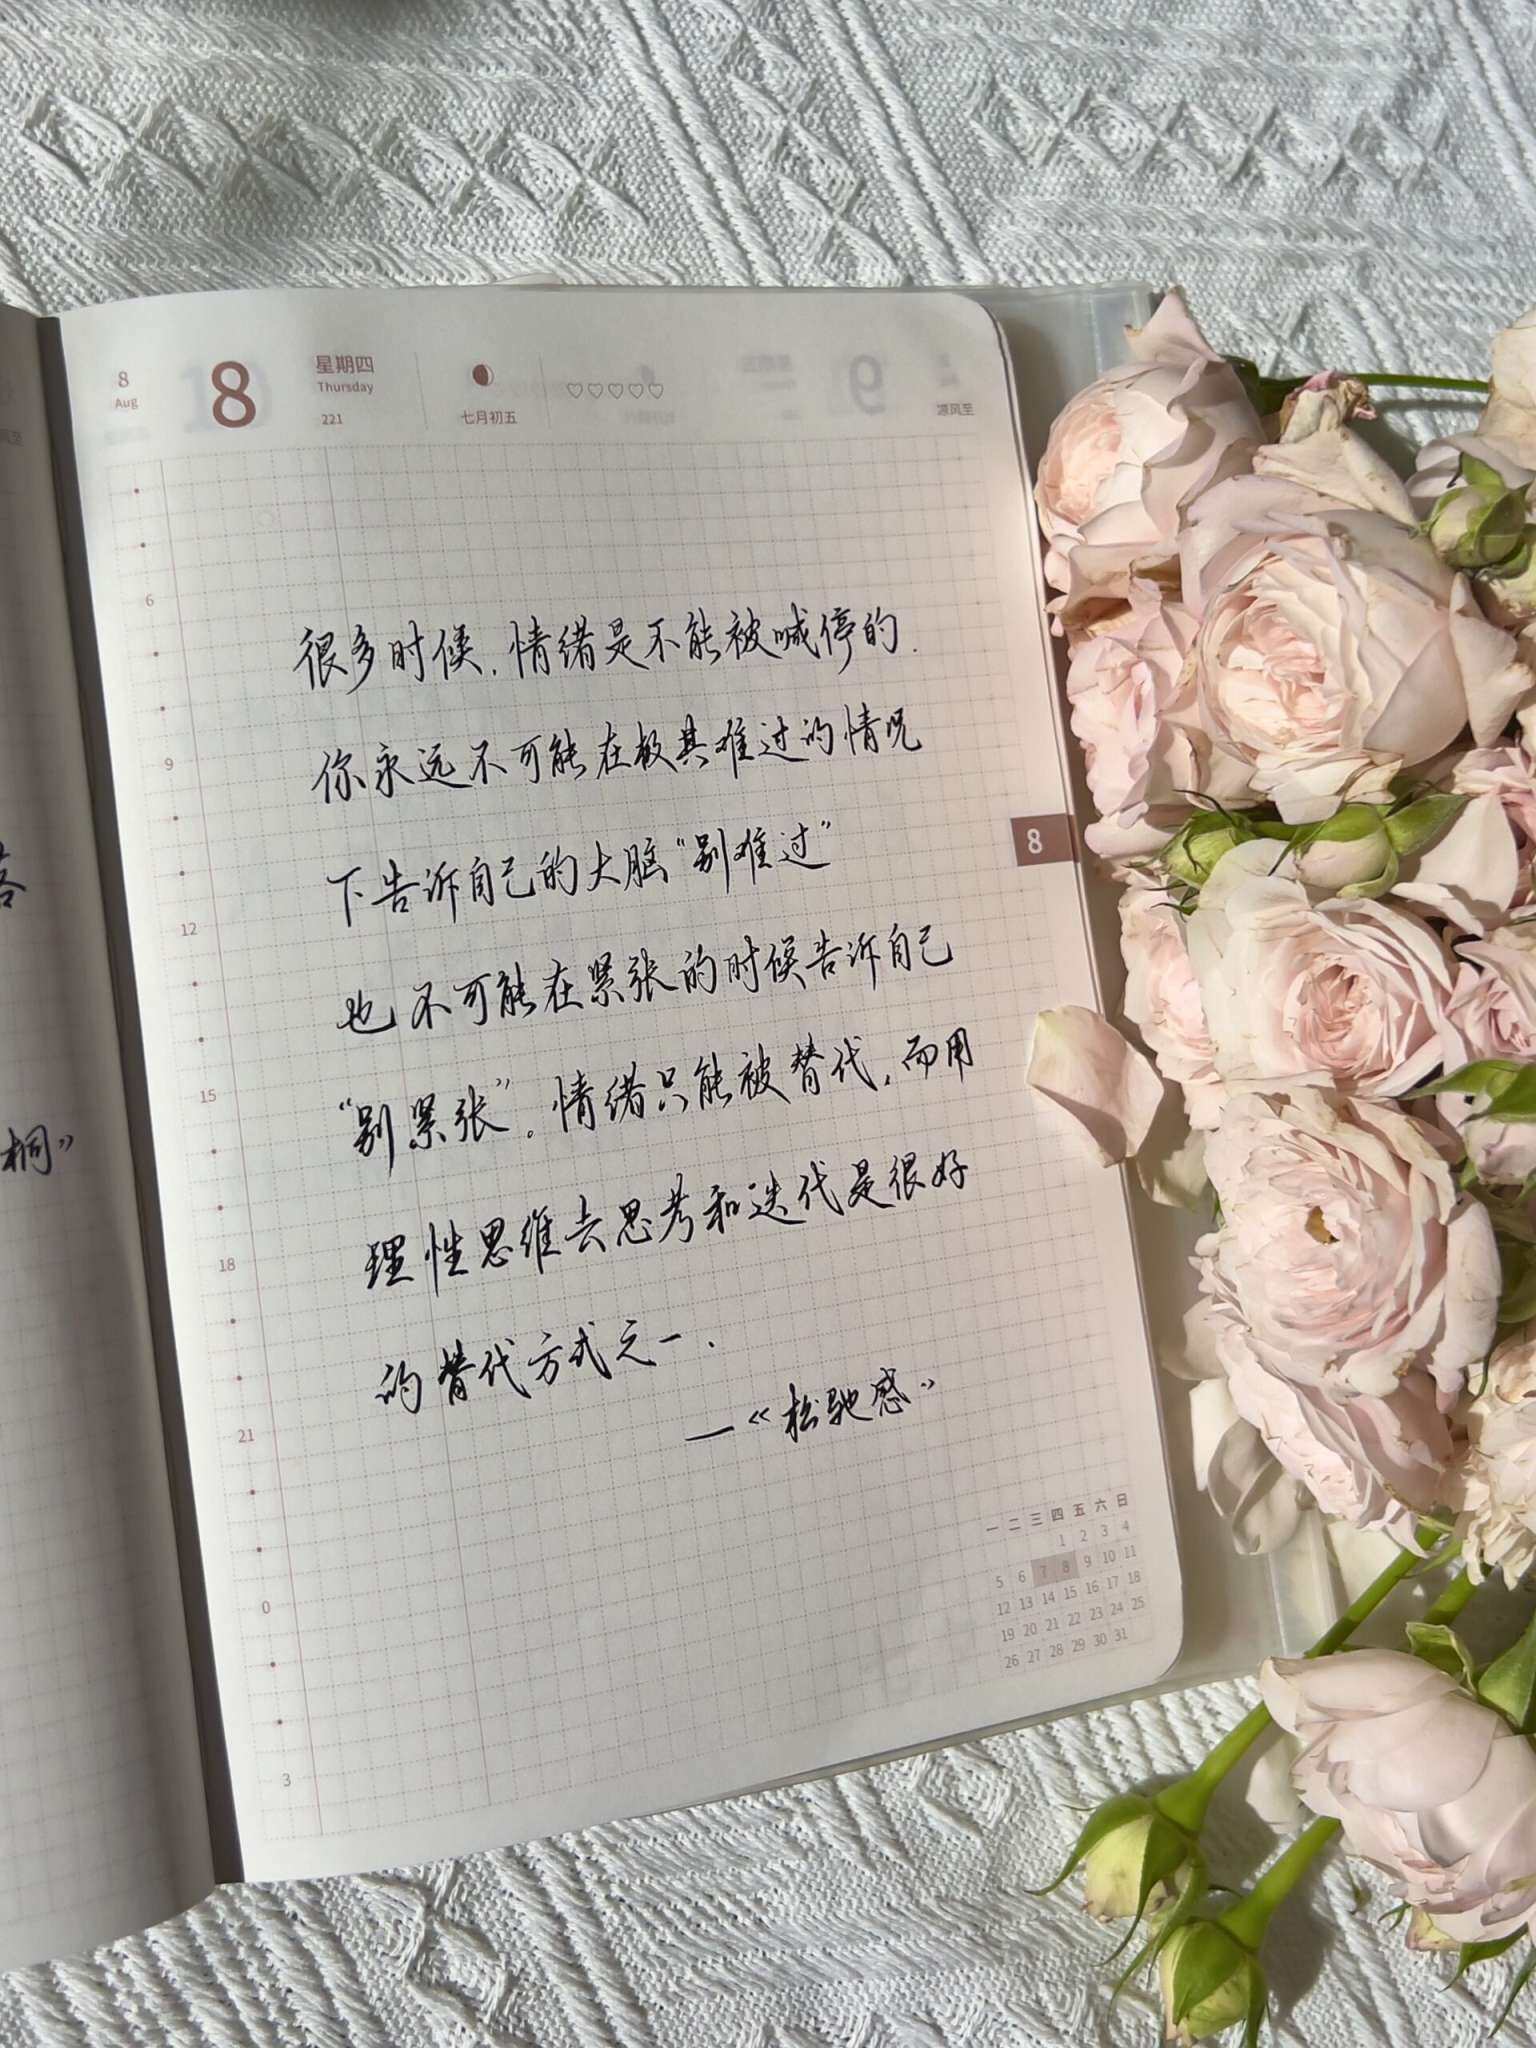 8
Aug
8
星期四
Thursday
221
七月初五
凉风至
很多时候,情绪是不能被喊停的.
你永远不可能在极其难过的情况
下告诉自己的大脑“别难过”
也不可能在紧张的时候告诉自己
“别紧张”。情绪只能被替代,而用
理性思维去思考和迭代是很好
的替代方式之一.
—《松驰感》
6
9
12
15
18
21
0
3
8
一 二 三 四 五 六 日
1 2 3 4
5 6 7 8 9 10 11
12 13 14 15 16 17 18
19 20 21 22 23 24 25
26 27 28 29 30 31
落
桐》